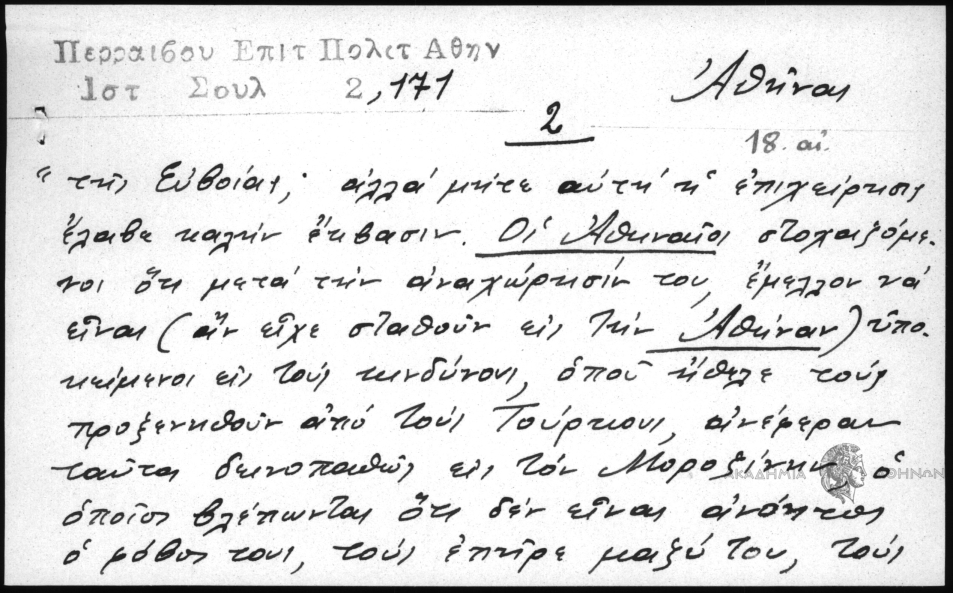 Περραιβου Επιτ Πολιτ Αθην
Ιστ Σουλ 2,171
Ἀθῆναι
2
18. αἰ.
"τῆς Εὐβοίας; ἀλλά μήτε αὐτή ἡ ἐπιχείρησις
ἔλαβε καλήν ἔκβασιν. Οἱ Ἀθηναῖοι στοχαζόμε-
νοι ὅτι μετά τήν ἀναχώρησίν του, ἔμελλον νά
εἶναι (ἄν εἶχε σταθοῦν εἰς τήν Ἀθήναν) ὑπο-
κείμενοι εἰς τούς κινδύνους, ὁποῦ ἤθελε τούς
προξενηθοῦν ἀπό τούς Τούρκους, ἀνέφεραν
ταῦτα δεινοπαθῶς εἰς τόν Μοροζίνην, ὁ
ὁποῖος βλέπωντας ὅτι δέν εἶναι ἀνόητος
ὁ φόβος τους, τούς ἐπῆρε μαζύ του, τούς
ΑΚΑΔΗΜΙΑ ΑΘΗΝΩΝ